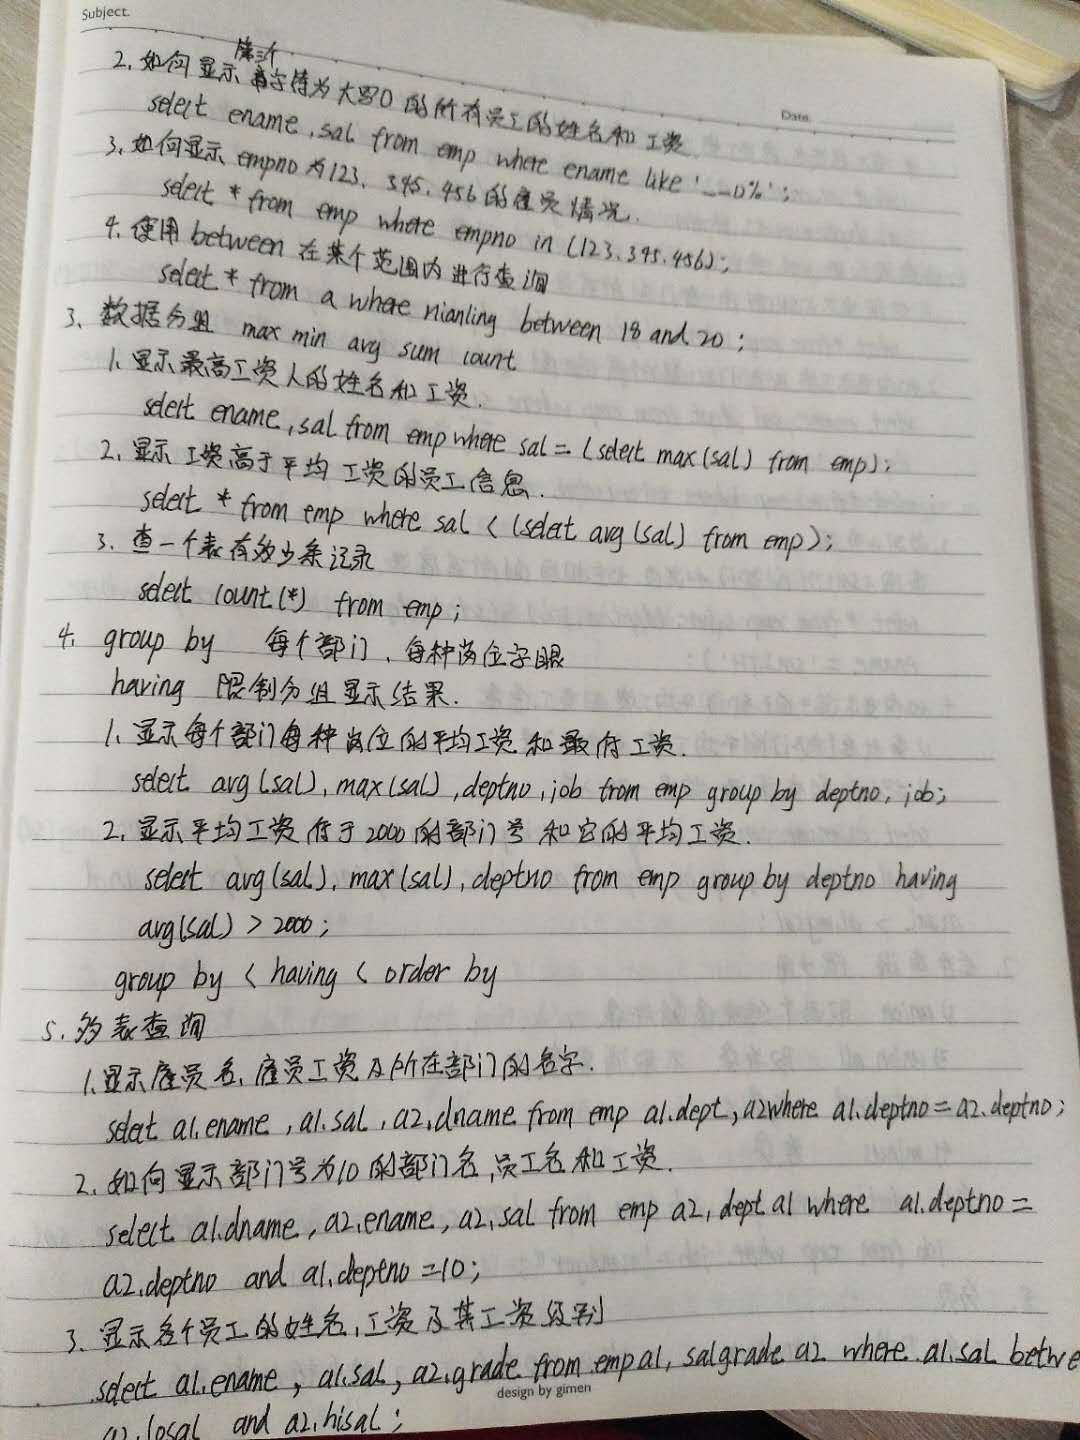 Subject.
Date
第三个
2. 如何显示 字符为大写O的所有员工的姓名和工资
select ename, sal from emp where ename like '__O%';
3. 如何显示 empno 为123、345、456的雇员情况.
select * from emp where empno in (123.345.456);
4. 使用 between 在某个范围内进行查询
select * from a where nianling between 18 and 20;
3. 数据分组 max min avg sum count
1. 显示最高工资人的姓名和工资.
select ename, sal from emp where sal = (select max(sal) from emp);
2. 显示工资高于平均工资的员工信息.
select * from emp where sal < (select avg(sal) from emp);
3. 查一个表有效少条记录
select count(*) from emp;
4. group by 每个部门、每种岗位字眼
having 限制分组显示结果.
1. 显示每个部门每种岗位的平均工资和最低工资.
select avg(sal), max(sal), deptno, job from emp group by deptno, job;
2. 显示平均工资低于2000的部门号和它的平均工资.
select avg(sal), max(sal), deptno from emp group by deptno having
avg(sal) > 2000;
group by < having < order by
5. 多表查询
1. 显示雇员名、雇员工资及所在部门的名字.
select a1.ename, a1.sal, a2.dname from emp a1.dept, a2 where a1.deptno = a2.deptno;
2. 如何显示部门号为10的部门名,员工名和工资.
select a1.dname, a2.ename, a2.sal from emp a2, dept a1 where a1.deptno =
a2.deptno and a1.deptno = 10;
3. 显示各个员工的姓名,工资及其工资级别
select a1.ename, a1.sal, a2.grade from emp a1, salgrade a2 where a1.sal betwe
a2.losal and a2.hisal;
design by gimen